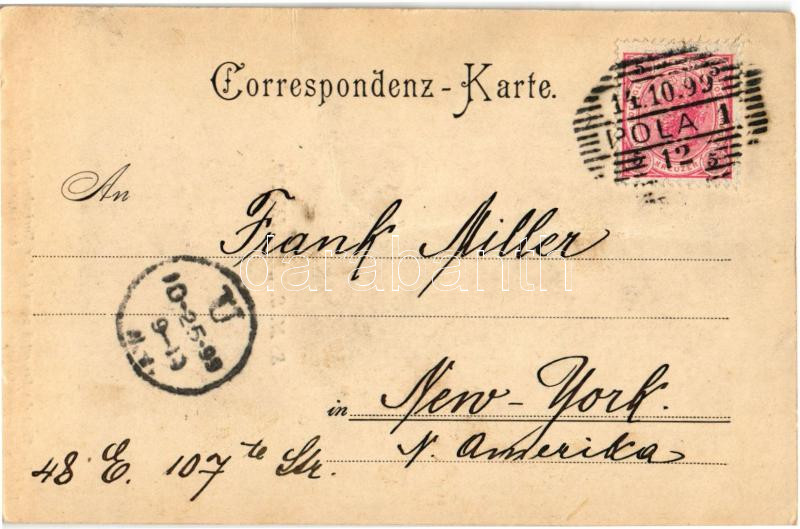 Correspondenz-Karte.
14.10.99
POLA 1
12
An
Frank Miller
darabanth
U
10-25-99
in New-York.
N. Amerika
48 E. 107te Str.